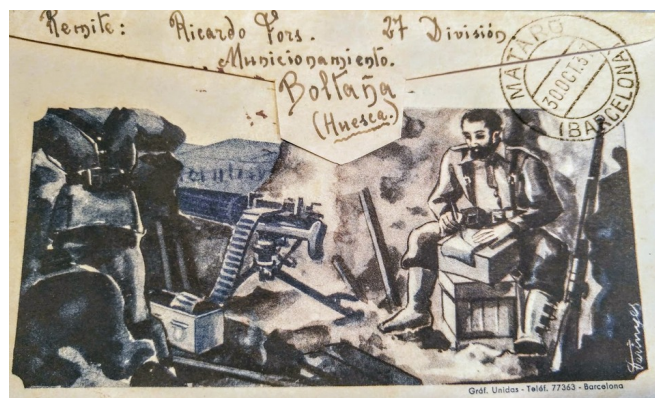 Remite: Ricardo Fors. 27 División
Municionamiento.
Boltaña
(Huesca.)
MATARO
30 OCT. 37
(BARCELONA)
Gráf. Unidas - Teléf. 77363 - Barcelona